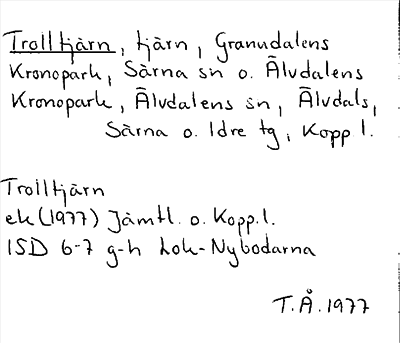 Trolltjärn, tjärn, Granudalens
Kronopark, Särna sn o. Älvdalens
Kronopark, Älvdalens sn, Älvdals,
Särna o. Idre tg, Kopp l.
Trolltjärn
ek (1977) Jämtl. o. Kopp. l.
ISD 6-7 g-h Lok-Nybodarna
T.Å. 1977